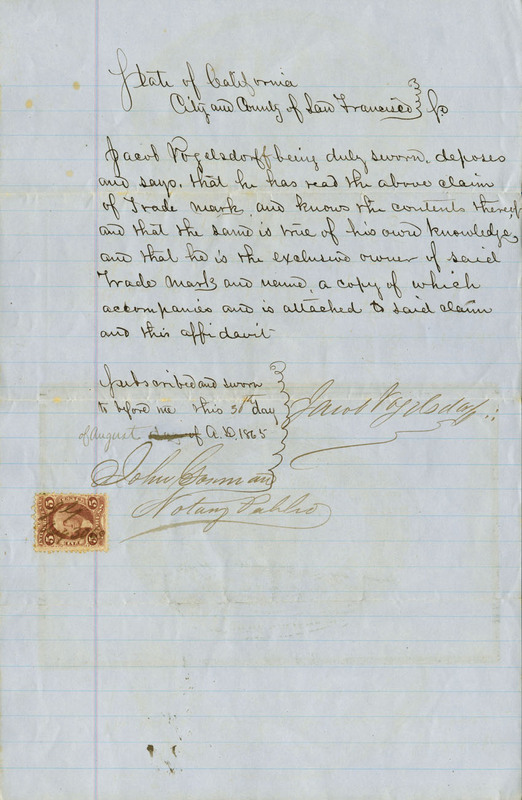 State of California
City and County of San Francisco } ss
Jacob Vogelsdorff being duly sworn, deposes
and says, that he has read the above claim
of Trade mark, and knows the contents thereof
and that the same is true of his own knowledge
and that he is the exclusive owner of said
Trade mark and name, a copy of which
accompanies and is attached to said claim
and this affidavit
Subscribed and sworn
to before me this 5th day
of August of A.D. 1865
Jacob Vogelsdorff
John Gorman
Notary Public
5
5
5
5